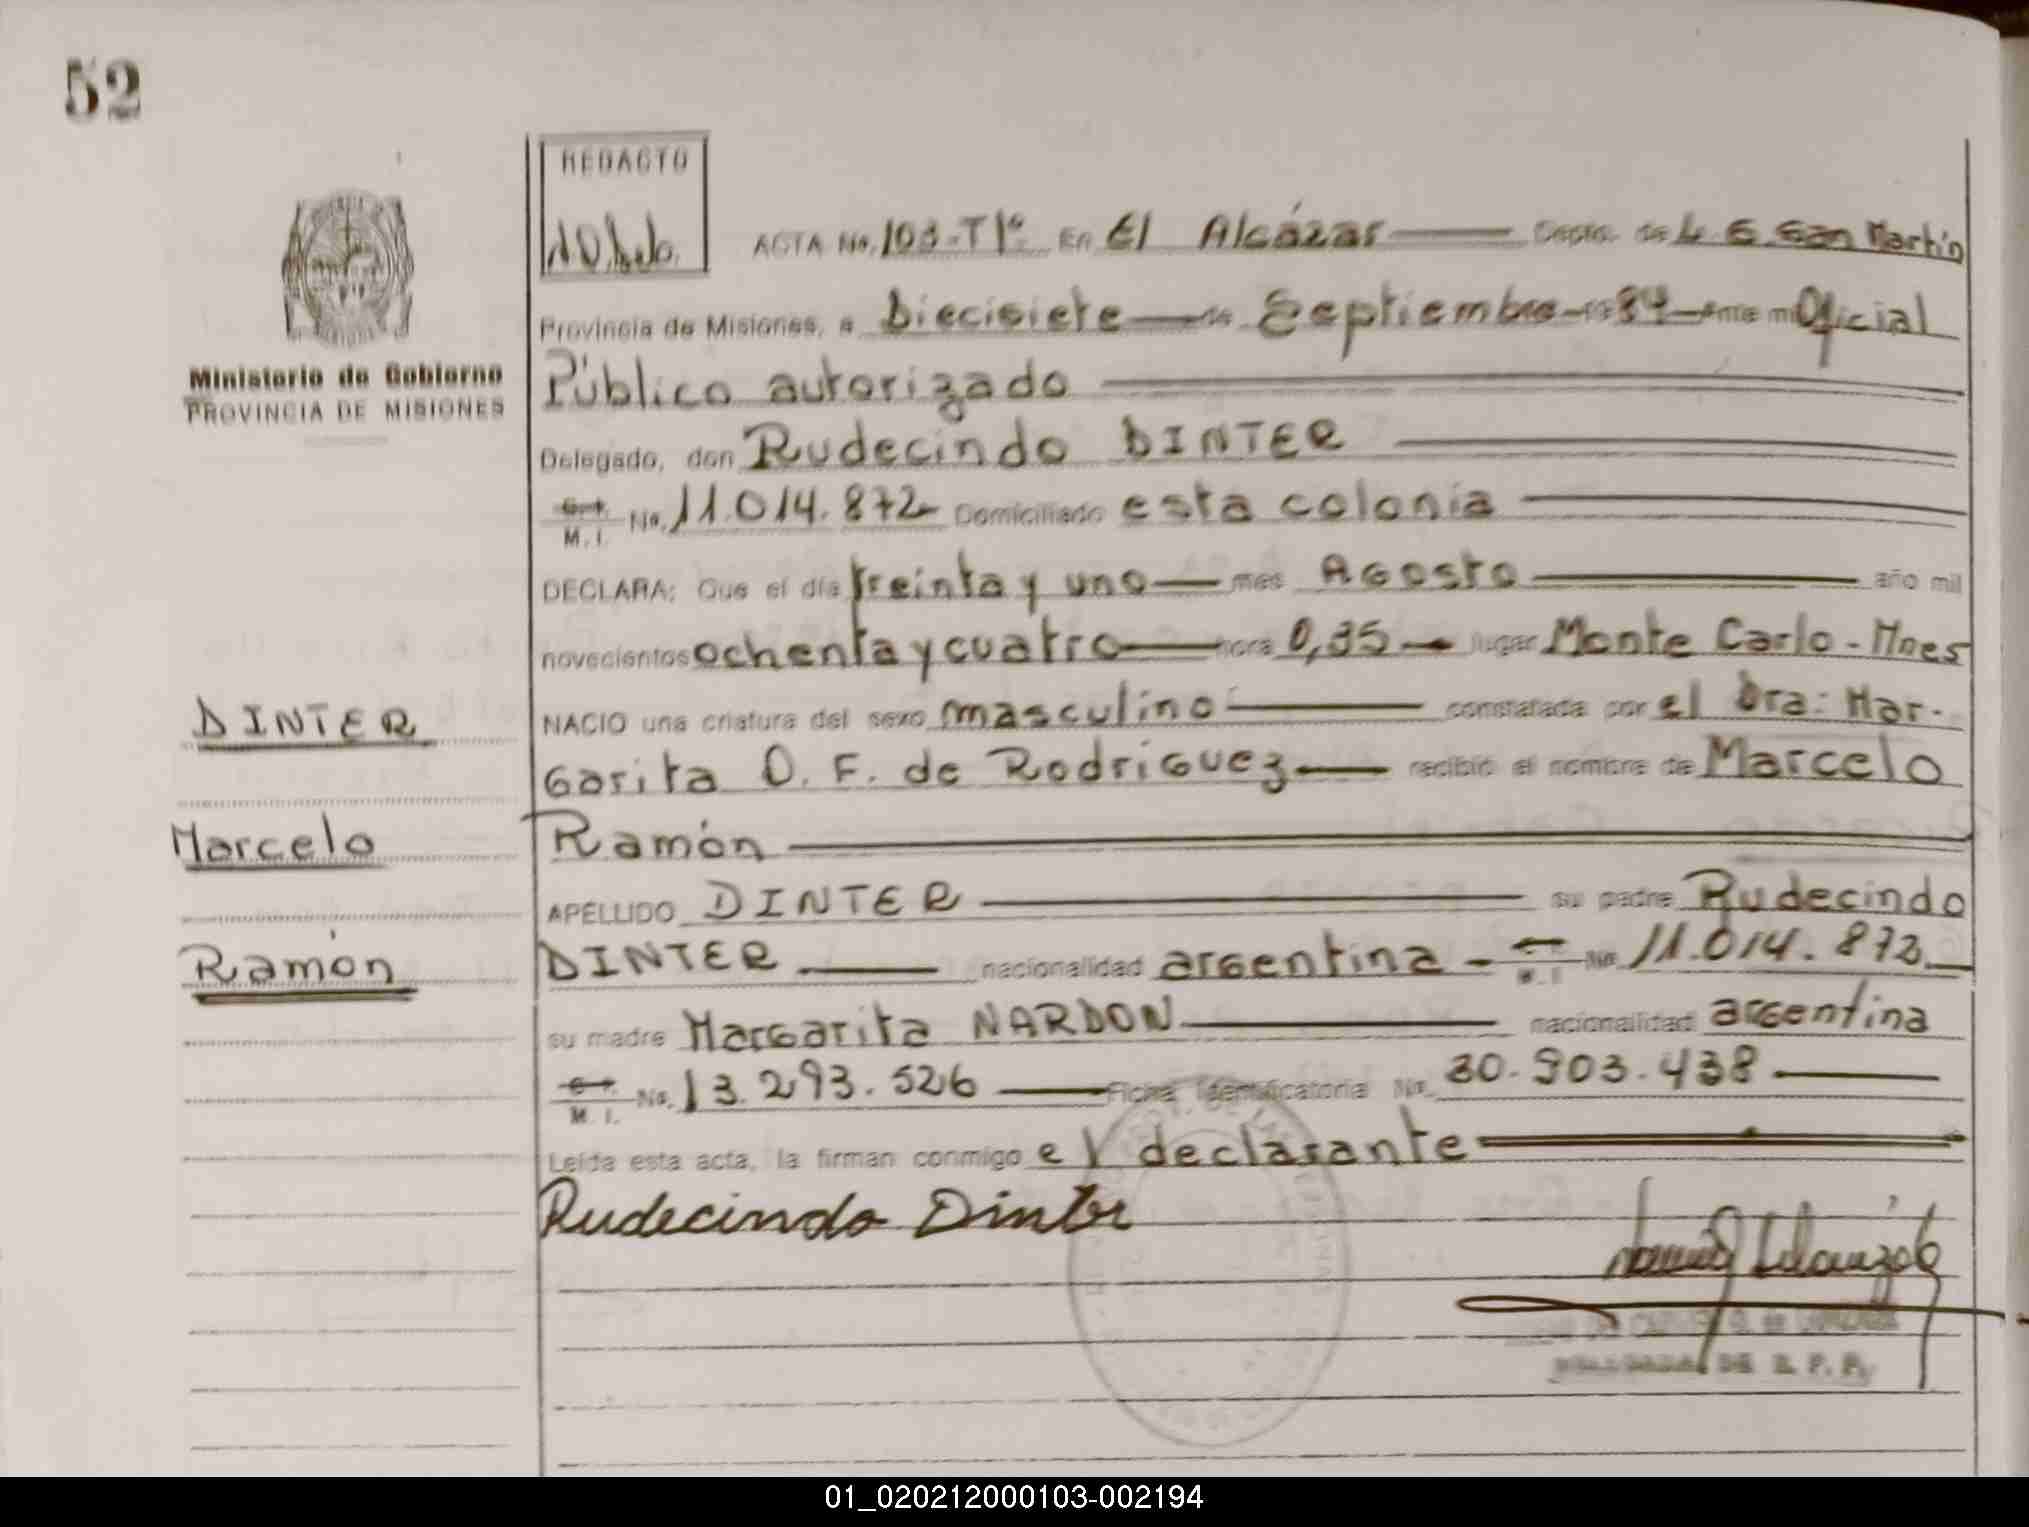 52
REDACTO
ACTA No. 103-T1º En El Alcázar Depto. de L G San Martin
Provincia de Misiones, a Diecisiete de Septiembre 1984 Ante mi Oficial
Ministerio de Gobierno
PROVINCIA DE MISIONES
Público autorizado
Delegado, don Rudecindo DINTER
M. I. No. 11.014.872 Domiciliado esta colonia
DECLARA: Que el día treinta y uno mes Agosto año mil
novecientos ochenta y cuatro hora 0,35 lugar Monte Carlo - Mnes
DINTER
NACIO una criatura del sexo masculino constatada por el Dra: Mar-
garita O. F. de Rodriguez recibió el nombre de Marcelo
Marcelo
Ramón
APELLIDO DINTER su padre Rudecindo
Ramón
DINTER nacionalidad argentina - M. I. No. 11.014.872
su madre Margarita NARDON nacionalidad argentina
M. I. No. 13.293.526 Ficha Identificatoria No. 30.903.438
Leída esta acta, la firman conmigo el declarante
Rudecindo Dinter
DE R. P. P.
01_020212000103-002194